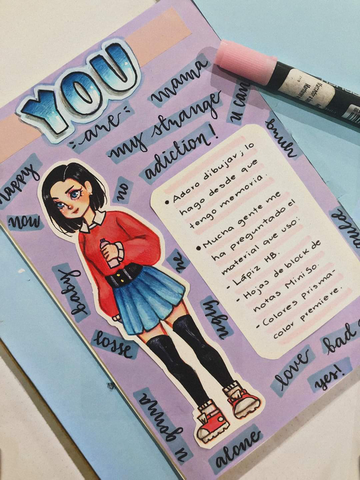 YOU
are
my strange
adiction!
mama
u can
happy
now
no
me
baby
ugly
losse
u gonna
alone
love
bad
yes!
• Adoro dibujar, lo
hago desde que
tengo memoria.
• Mucha gente me
ha preguntado el
material que uso:
- Lápiz HB.
- Hojas de block de
notas Miniso.
- Colores prisma-
color premiere.